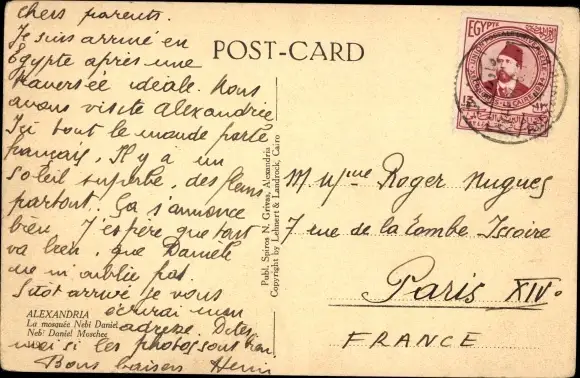 Chers parents.
Je suis arrivé en
Égypte après une
traversée idéale. Nous
avons visité Alexandrie
Ici tout le monde parle
français, Il y a un
soleil superbe, des fleurs
partout. Ça s'annonce
bien. J'espère que tout
va bien, que Danièle
ne m'oublie pas.
Sitôt arrivé je vous
écrirai mon
adresse. Dites
moi si les photos sont bien
Bons baisers Henri
POST-CARD
ALEXANDRIA
La mosquée Nebi Daniel
Nebi Daniel Moschee
Publ. Spiros N. Grivas, Alexandria
Copyright by Lehnert & Landrock, Cairo
EGYPTE
M Mme Roger Hugues
7 rue de la Tombe-Issoire
Paris XIVo
FRANCE